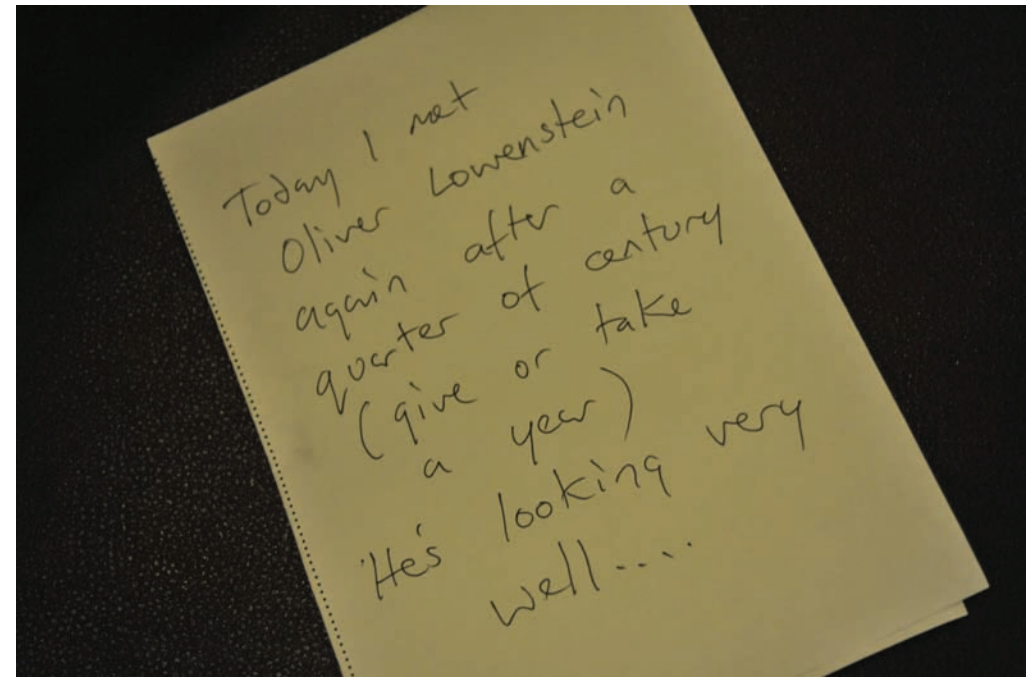 Today I met
Oliver Lowenstein
again after a
quarter of century
(give or take
a year)
He's looking very
well....